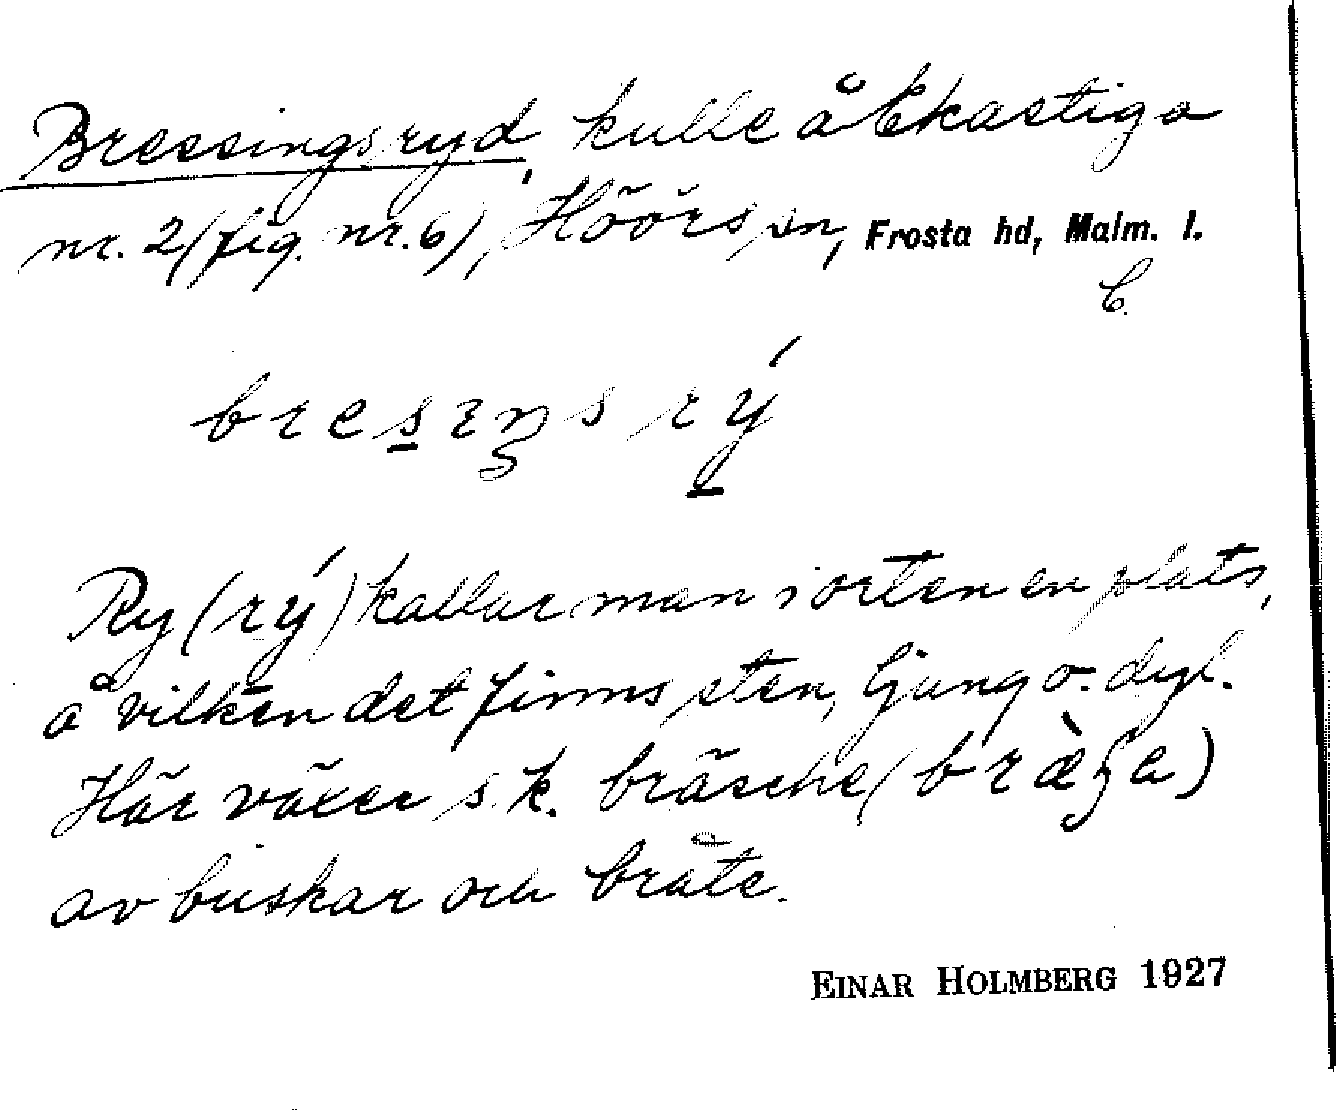 Bressingsryd, kulle å Ekastiga
nr. 2 (fig. nr. 6), Höörs sn, Frosta hd, Malm. l.
C.
bresıŋs rý
Ry (rý) kallar man i orten en plats,
å vilken det finns sten, ljung o. dyl.
Här växer s. k. bräsche (bràʃa)
av buskar och bråte.
EINAR HOLMBERG 1927